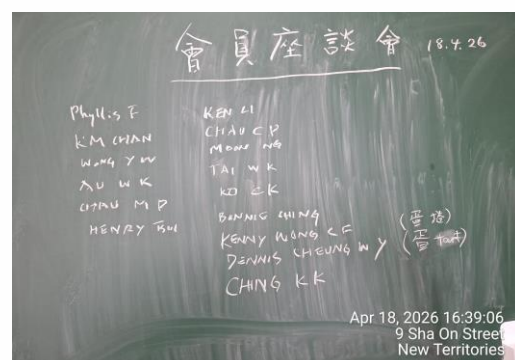 會員座談會 18.4.26
Phyllis F
KM CHAN
WONG Y W
AU W K
CHAU M P
HENRY
KEN LI
CHAU C P
MOON NG
TAI W K
KO C K
BONNIE CHING
KENNY WONG C F
DENNIS CHEUNG W Y
CHING K K
(蛋
(蛋 tart)
Apr 18, 2026 16:39:06
9 Sha On Street
New Territories